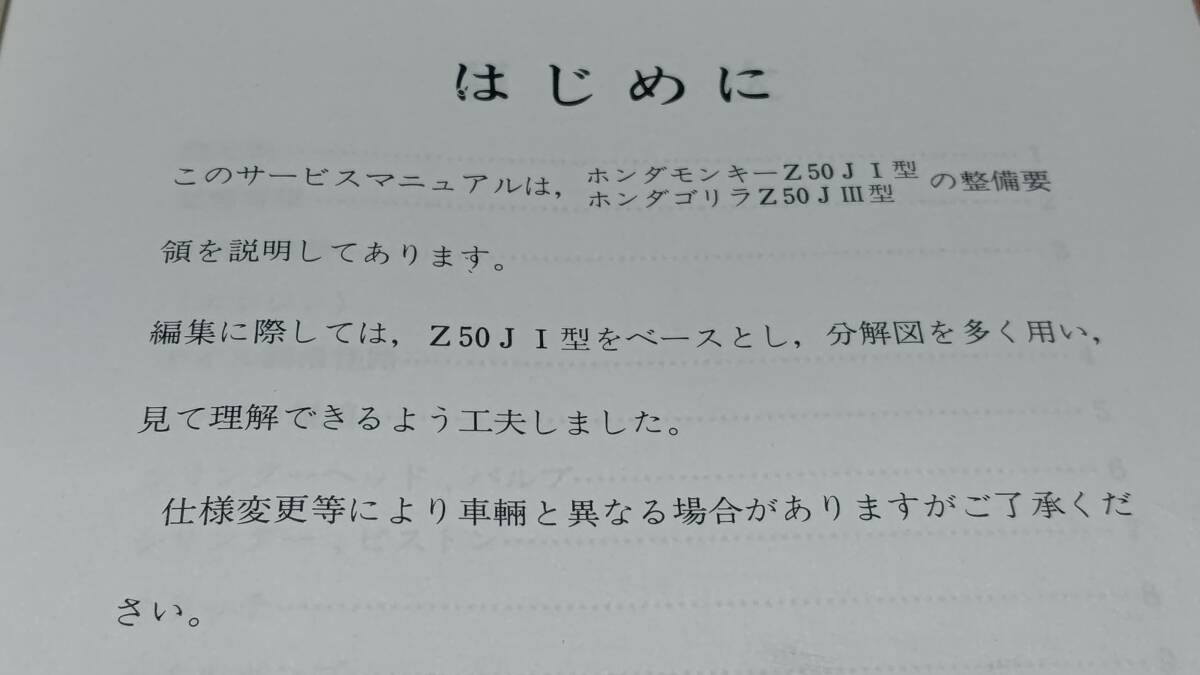 はじめに
このサービスマニュアルは，ホンダモンキーZ50J I 型
ホンダゴリラZ50J III型 の整備要
領を説明してあります。
編集に際しては，Z50J I 型をベースとし，分解図を多く用い，
見て理解できるよう工夫しました。
仕様変更等により車輛と異なる場合がありますがご了承くだ
さい。
1
2
3
4
5
シリンダーヘッド，バルブ 6
シリンダー，ピストン 7
8
9